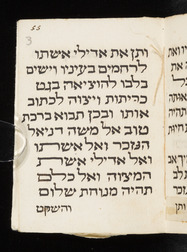 55
3
ותן את אדילי אשתו
לרחמים בעיניו וישים
בלבו להוציאה בגט
כריתות ויצוה לכתוב
אותו ובכן תבוא ברכת
טוב אל משה דניאל
הנזכר ואל אשתו
ואל אדילי אשתו
המצווה ואל כלם
תהיה מנוחת שלום
והשקט